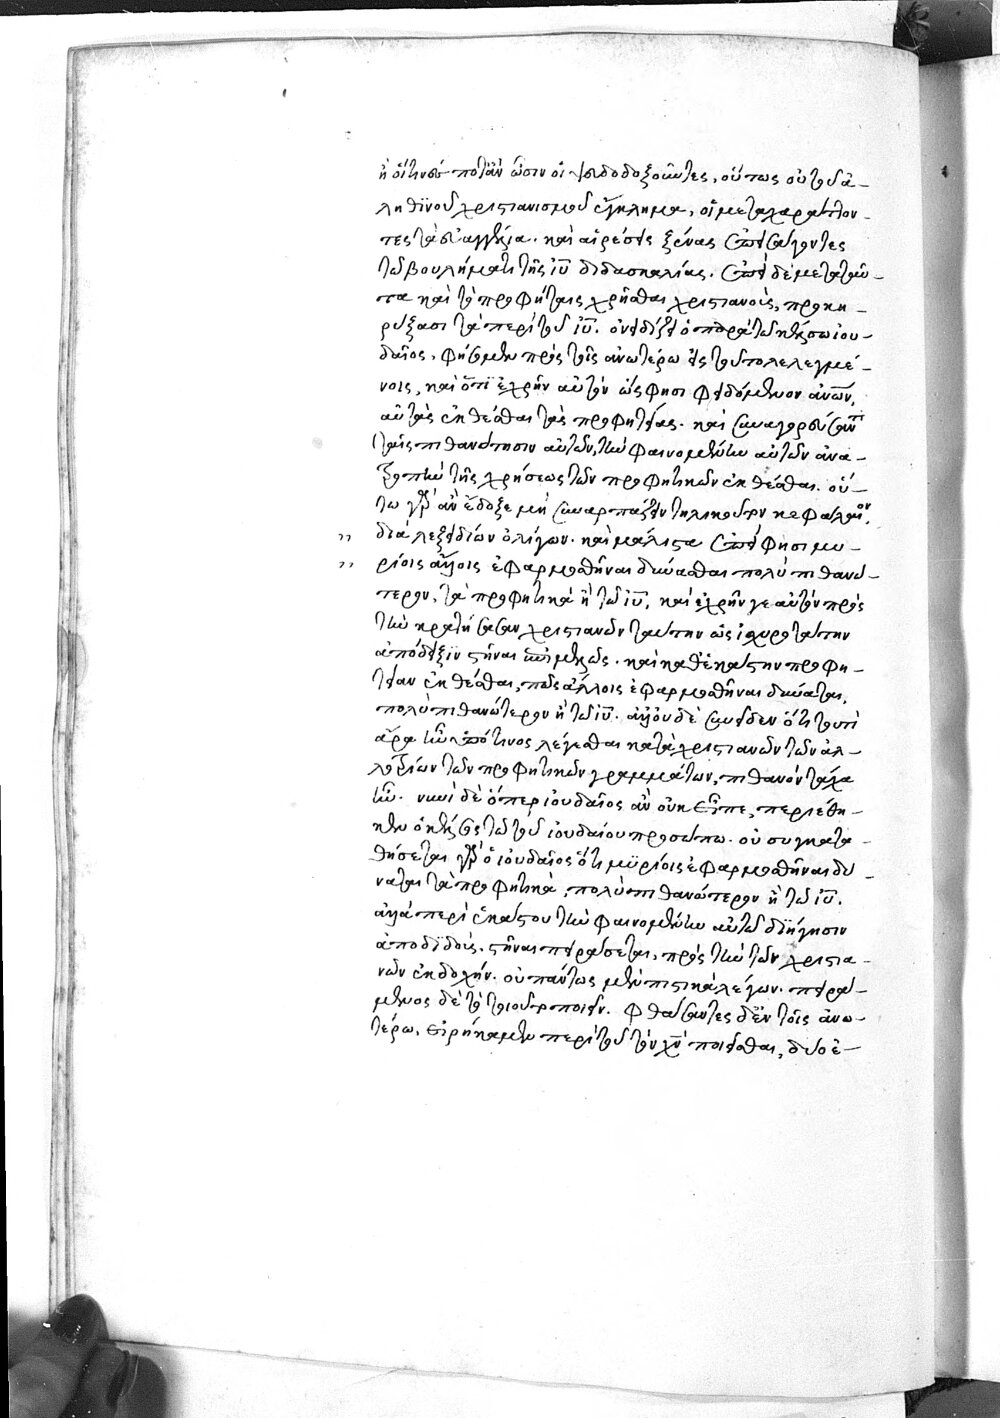 ἢ οἵτινές ποτ' ἂν ὦσιν οἱ ψευδοδοξοῦντες, οὕτως οὐ τοῦ ἀ-
ληθινοῦ χριστιανισμοῦ ἔγκλημα, οἱ μεταχαράττον-
τες τὰ εὐαγγέλια. καὶ αἱρέσεις ξένας ἐπεισάγοντες
τῷ βουλήματι τῆς ἰῦ διδασκαλίας. ἐπεὶ δὲ μετὰ ταῦ-
τα καὶ τὸ προφήταις χρῆσθαι χριστιανοὺς, προκη-
ρύξασι τὰ περὶ τοῦ ἰῦ. ὀνειδίζει ὁ παρὰ τῷ κέλσῳ ἰου-
δαῖος, φήσομεν πρὸς τοῖς ἀνωτέρω εἰς τοῦτο λελεγμέ-
νοις, καὶ ὅτι ἐχρῆν αὐτὸν ὥς φησι φειδόμενον ἀνῶν,
αὐτὰς ἐκθέσθαι τὰς προφητείας. καὶ συναγορεύσαντα
ταῖς πιθανότησιν αὐτῶν, τὴν φαινομένην αὐτῶν ἀνα-
τροπὴν τῆς χρήσεως τῶν προφητικῶν ἐκθέσθαι. οὕ-
τω γὰρ ἂν ἔδοξε μὴ συναρπάζειν τηλικοῦτον κεφάλαιον,
διὰ λεξειδίων ὀλίγων. καὶ μάλιστα ἐπεὶ φησὶ μυ-
ρίοις ἄλλοις ἐφαρμοσθῆναι δύνασθαι πολὺ πιθανώ-
τερον, τὰ προφητικὰ ἢ τῷ ἰῦ, καὶ ἐχρῆν γε αὐτὸν πρὸς
τὴν κρατήσασαν χριστιανῶν ταύτην ὡς ἰσχυροτάτην
ἀπόδειξιν στῆναι ἐπιμελῶς. καὶ καθ' ἑκάστην προφη-
τείαν ἐκθέσθαι, πῶς ἄλλοις ἐφαρμοσθῆναι δύναται,
πολὺ πιθανώτερον ἢ τῷ ἰῦ. ἀλλ' οὐδὲ συνεῖδεν ὅτι τοῦτο
ἄρα ἦν ὑπό τινος λέγεσθαι κατὰ χριστιανῶν τῶν ἀλ-
λοτρίων τῶν προφητικῶν γραμμάτων, πιθανὸν τάχα
ἦν. νυνὶ δὲ ὅπερ ἰουδαῖος ἂν οὐκ εἶπε, περιέθη-
κεν ὁ κέλσος τῷ τοῦ ἰουδαίου προσώπῳ. οὐ συγκατα-
θήσεται γὰρ ὁ ἰουδαῖος ὅτι μυρίοις ἐφαρμοσθῆναι δύ-
ναται τὰ προφητικὰ, πολὺ πιθανώτερον ἢ τῷ ἰῦ.
ἀλλὰ περὶ ἑκάστου τὴν φαινομένην αὐτῷ διήγησιν
ἀποδιδοὺς. στῆναι πειράσεται, πρὸς τὴν τῶν χριστια-
νῶν ἐκδοχήν. οὐ πάντως μὲν πιστικὰ λέγων. πειρώ-
μενος δὲ τὸ τοιοῦτον ποιεῖν. Φθάσαντες δ' ἐν τοῖς ἀνω-
τέρω, εἰρήκαμεν περὶ τοῦ τὸν χν ποιεῖσθαι, δύο ἐ-